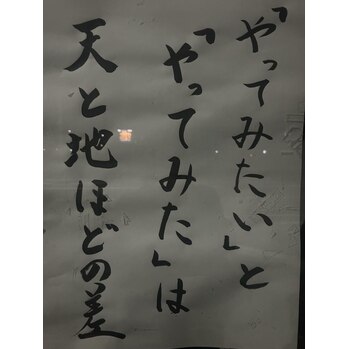 「やってみたい」と
「やってみた」は
天と地ほどの差